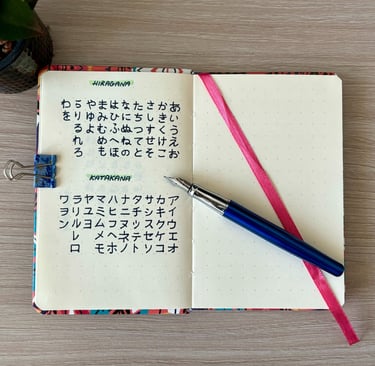 HIRAGANA
あいうえお
かきくけこ
さしすせそ
たちつてと
なにぬねの
はひふへほ
まみむめも
やゆよ
らりるれろ
わを
KATAKANA
アイウエオ
カキクケコ
サシスセソ
タチツテト
ナニヌネノ
ハヒフヘホ
マミムメモ
ヤユヨ
ラリルレロ
ワヲン